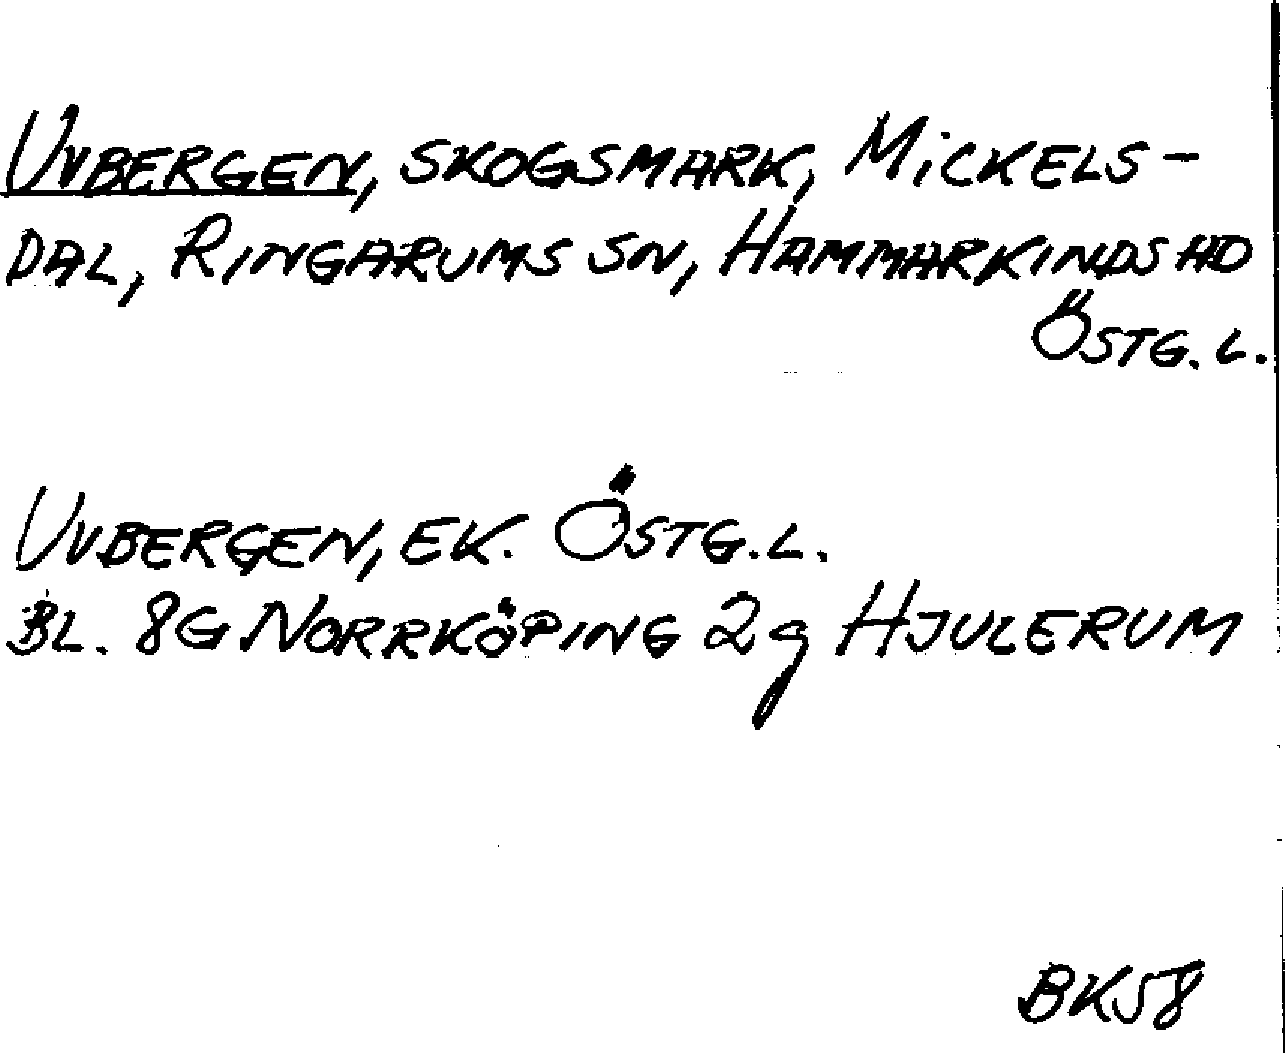 UVBERGEN, SKOGSMARK, MICKELS-
DAL, RINGARUMS SN, HAMMARKINDS HD
ÖSTG. L.
UVBERGEN, EK. ÖSTG.L.
BL. 8G NORRKÖPING 2g HJULERUM
BK58